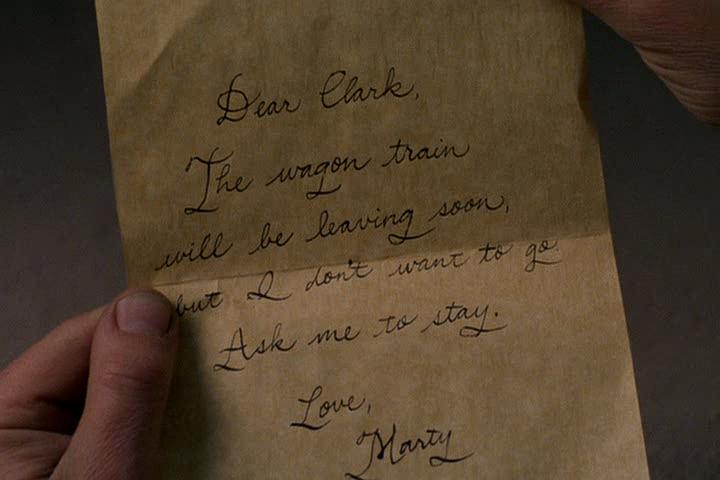 Dear Clark,
The wagon train
will be leaving soon,
but I don't want to go.
Ask me to stay.
Love,
Marty